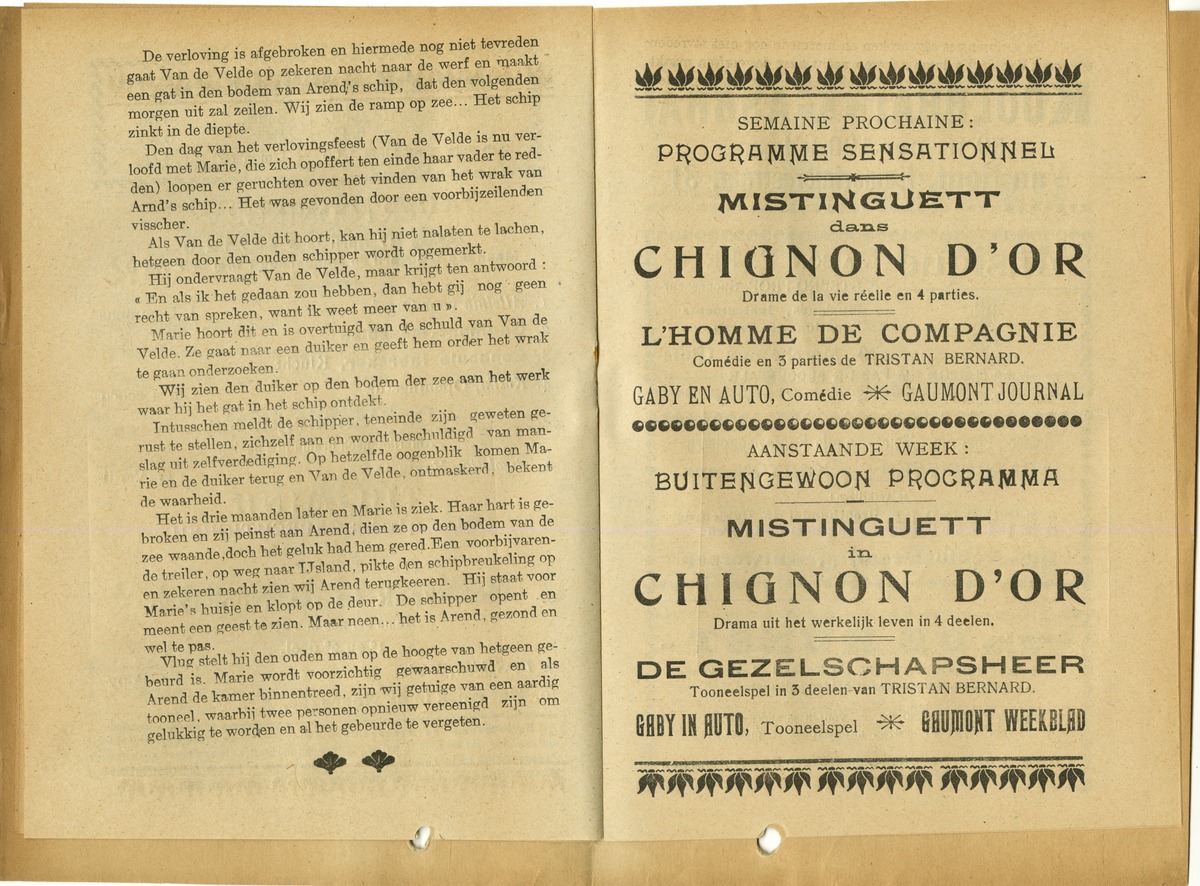 De verloving is afgebroken en hiermede nog niet tevreden
gaat Van de Velde op zekeren nacht naar de werf en maakt
een gat in den bodem van Arend's schip, dat den volgenden
morgen uit zal zeilen. Wij zien de ramp op zee... Het schip
zinkt in de diepte.
Den dag van het verlovingsfeest (Van de Velde is nu ver-
loofd met Marie, die zich opoffert ten einde haar vader te red-
den) loopen er geruchten over het vinden van het wrak van
Arnd's schip... Het was gevonden door een voorbijzeilenden
visscher.
Als Van de Velde dit hoort, kan hij niet nalaten te lachen,
hetgeen door den ouden schipper wordt opgemerkt.
Hij ondervraagt Van de Velde, maar krijgt ten antwoord :
« En als ik het gedaan zou hebben, dan hebt gij nog geen
recht van spreken, want ik weet meer van u ».
Marie hoort dit en is overtuigd van de schuld van Van de
Velde. Ze gaat naar een duiker en geeft hem order het wrak
te gaan onderzoeken.
Wij zien den duiker op den bodem der zee aan het werk
waar hij het gat in het schip ontdekt.
Intusschen meldt de schipper, teneinde zijn geweten ge-
rust te stellen, zichzelf aan en wordt beschuldigd van man-
slag uit zelfverdediging. Op hetzelfde oogenblik komen Ma-
rie en de duiker terug en Van de Velde, ontmaskerd, bekent
de waarheid.
Het is drie maanden later en Marie is ziek. Haar hart is ge-
broken en zij peinst aan Arend, dien ze op den bodem van de
zee waande, doch het geluk had hem gered. Een voorbijvaren-
de treiler, op weg naar IJsland, pikte den schipbreukeling op
en zekeren nacht zien wij Arend terugkeeren. Hij staat voor
Marie's huisje en klopt op de deur. De schipper opent en
meent een geest te zien. Maar neen... het is Arend, gezond en
wel te pas.
Vlug stelt hij den ouden man op de hoogte van hetgeen ge-
beurd is. Marie wordt voorzichtig gewaarschuwd en als
Arend de kamer binnentreed, zijn wij getuige van een aardig
tooneel, waarbij twee personen opnieuw vereenigd zijn om
gelukkig te worden en al het gebeurde te vergeten.
SEMAINE PROCHAINE :
PROGRAMME SENSATIONNEL
MISTINGUETT
dans
CHIGNON D'OR
Drame de la vie réelle en 4 parties.
L'HOMME DE COMPAGNIE
Comédie en 3 parties de TRISTAN BERNARD.
GABY EN AUTO, Comédie GAUMONT JOURNAL
AANSTAANDE WEEK :
BUITENGEWOON PROGRAMMA
MISTINGUETT
in
CHIGNON D'OR
Drama uit het werkelijk leven in 4 deelen.
DE GEZELSCHAPSHEER
Tooneelspel in 3 deelen van TRISTAN BERNARD.
GABY IN AUTO, Tooneelspel GAUMONT WEEKBLAD